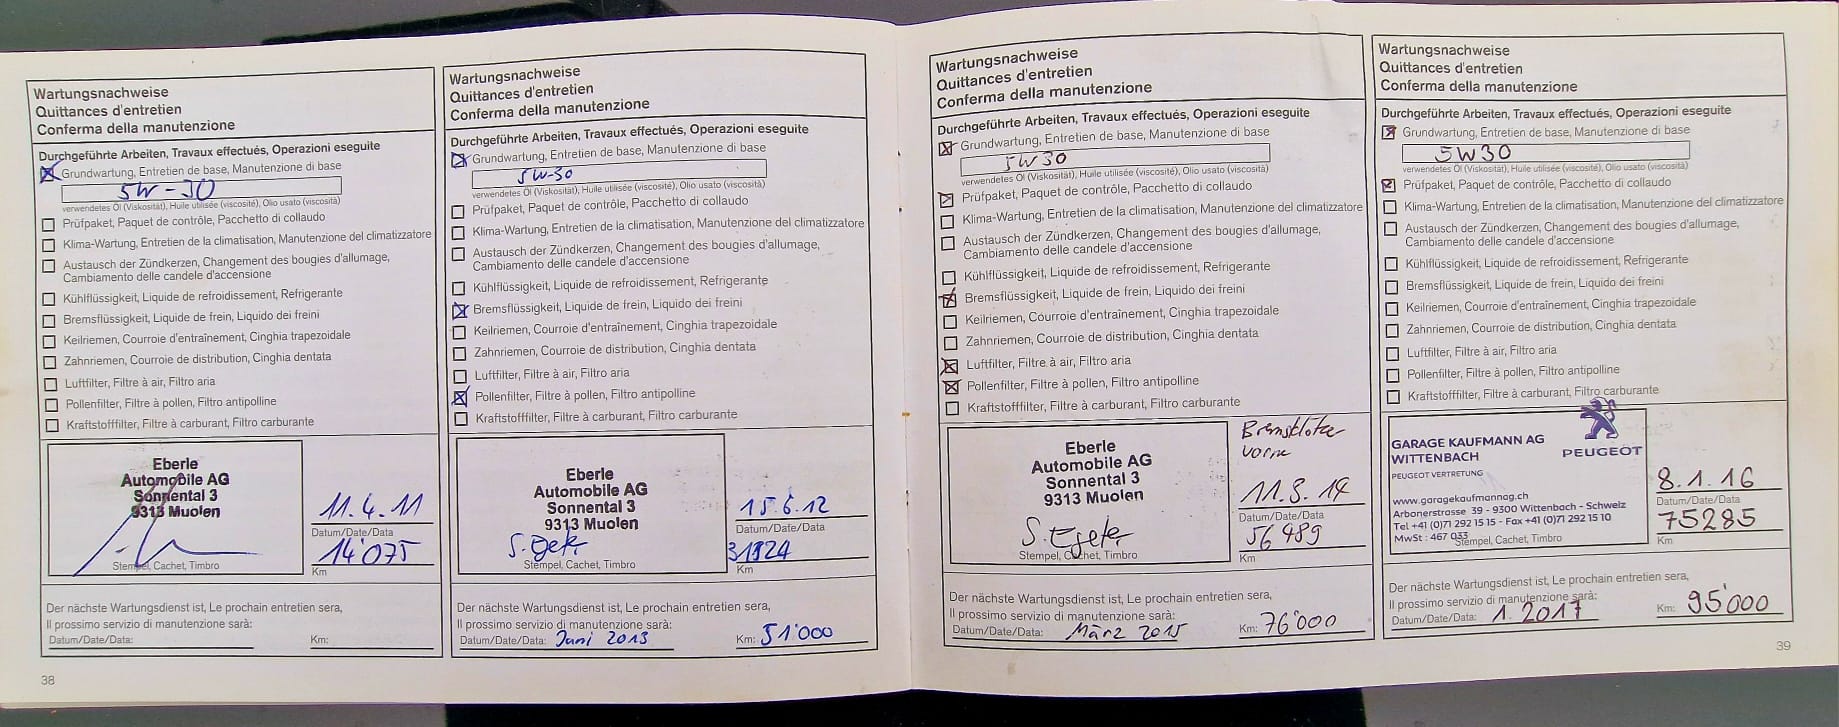 Wartungsnachweise
Quittances d'entretien
Conferma della manutenzione
Durchgeführte Arbeiten, Travaux effectués, Operazioni eseguite
Grundwartung, Entretien de base, Manutenzione di base
5W-30
verwendetes Öl (Viskosität), Huile utilisée (viscosité), Olio usato (viscosità)
Prüfpaket, Paquet de contrôle, Pacchetto di collaudo
Klima-Wartung, Entretien de la climatisation, Manutenzione del climatizzatore
Austausch der Zündkerzen, Changement des bougies d'allumage,
Cambiamento delle candele d'accensione
Kühlflüssigkeit, Liquide de refroidissement, Refrigerante
Bremsflüssigkeit, Liquide de frein, Liquido dei freini
Keilriemen, Courroie d'entraînement, Cinghia trapezoidale
Zahnriemen, Courroie de distribution, Cinghia dentata
Luftfilter, Filtre à air, Filtro aria
Pollenfilter, Filtre à pollen, Filtro antipolline
Kraftstofffilter, Filtre à carburant, Filtro carburante
Eberle
Automobile AG
Sonnental 3
9313 Muolen
Stempel, Cachet, Timbro
11.4.11
Datum/Date/Data
14'075
Km
Der nächste Wartungsdienst ist, Le prochain entretien sera,
Il prossimo servizio di manutenzione sarà:
Datum/Date/Data:
Km:
38
Wartungsnachweise
Quittances d'entretien
Conferma della manutenzione
Durchgeführte Arbeiten, Travaux effectués, Operazioni eseguite
Grundwartung, Entretien de base, Manutenzione di base
5W-30
verwendetes Öl (Viskosität), Huile utilisée (viscosité), Olio usato (viscosità)
Prüfpaket, Paquet de contrôle, Pacchetto di collaudo
Klima-Wartung, Entretien de la climatisation, Manutenzione del climatizzatore
Austausch der Zündkerzen, Changement des bougies d'allumage,
Cambiamento delle candele d'accensione
Kühlflüssigkeit, Liquide de refroidissement, Refrigerante
Bremsflüssigkeit, Liquide de frein, Liquido dei freini
Keilriemen, Courroie d'entraînement, Cinghia trapezoidale
Zahnriemen, Courroie de distribution, Cinghia dentata
Luftfilter, Filtre à air, Filtro aria
Pollenfilter, Filtre à pollen, Filtro antipolline
Kraftstofffilter, Filtre à carburant, Filtro carburante
Eberle
Automobile AG
Sonnental 3
9313 Muolen
Stempel, Cachet, Timbro
15.6.12
Datum/Date/Data
Km
Der nächste Wartungsdienst ist, Le prochain entretien sera,
Il prossimo servizio di manutenzione sarà:
Datum/Date/Data: Juni 2013
Km: 51'000
Wartungsnachweise
Quittances d'entretien
Conferma della manutenzione
Durchgeführte Arbeiten, Travaux effectués, Operazioni eseguite
Grundwartung, Entretien de base, Manutenzione di base
5W30
verwendetes Öl (Viskosität), Huile utilisée (viscosité), Olio usato (viscosità)
Prüfpaket, Paquet de contrôle, Pacchetto di collaudo
Klima-Wartung, Entretien de la climatisation, Manutenzione del climatizzatore
Austausch der Zündkerzen, Changement des bougies d'allumage,
Cambiamento delle candele d'accensione
Kühlflüssigkeit, Liquide de refroidissement, Refrigerante
Bremsflüssigkeit, Liquide de frein, Liquido dei freini
Keilriemen, Courroie d'entraînement, Cinghia trapezoidale
Zahnriemen, Courroie de distribution, Cinghia dentata
Luftfilter, Filtre à air, Filtro aria
Pollenfilter, Filtre à pollen, Filtro antipolline
Kraftstofffilter, Filtre à carburant, Filtro carburante
Eberle
Automobile AG
Sonnental 3
9313 Muolen
Stempel, Cachet, Timbro
Bremsklötze
vorne
Datum/Date/Data
56489
Km
Der nächste Wartungsdienst ist, Le prochain entretien sera,
Il prossimo servizio di manutenzione sarà:
Datum/Date/Data: März 2015
Km: 76'000
Wartungsnachweise
Quittances d'entretien
Conferma della manutenzione
Durchgeführte Arbeiten, Travaux effectués, Operazioni eseguite
Grundwartung, Entretien de base, Manutenzione di base
5W30
verwendetes Öl (Viskosität), Huile utilisée (viscosité), Olio usato (viscosità)
Prüfpaket, Paquet de contrôle, Pacchetto di collaudo
Klima-Wartung, Entretien de la climatisation, Manutenzione del climatizzatore
Austausch der Zündkerzen, Changement des bougies d'allumage,
Cambiamento delle candele d'accensione
Kühlflüssigkeit, Liquide de refroidissement, Refrigerante
Bremsflüssigkeit, Liquide de frein, Liquido dei freini
Keilriemen, Courroie d'entraînement, Cinghia trapezoidale
Zahnriemen, Courroie de distribution, Cinghia dentata
Luftfilter, Filtre à air, Filtro aria
Pollenfilter, Filtre à pollen, Filtro antipolline
Kraftstofffilter, Filtre à carburant, Filtro carburante
GARAGE KAUFMANN AG
WITTENBACH
PEUGEOT VERTRETUNG
PEUGEOT
www.garagekaufmannag.ch
Arbonerstrasse 39 - 9300 Wittenbach - Schweiz
Tel +41 (0)71 292 15 15 - Fax +41 (0)71 292 15 10
MwSt : 467 033
Stempel, Cachet, Timbro
8.1.16
Datum/Date/Data
75285
Km
Der nächste Wartungsdienst ist, Le prochain entretien sera,
Il prossimo servizio di manutenzione sarà:
Datum/Date/Data: 1.2017
Km: 95'000
39